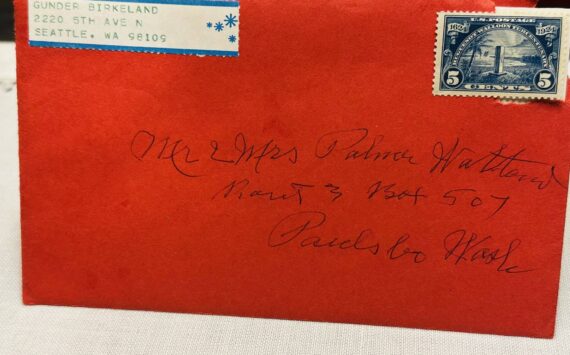 GUNDER BIRKELAND
2220 5TH AVE N
SEATTLE, WA 98109
U.S. POSTAGE
1624 1924
HUGUENOT-WALLOON TERCENTENARY
5 5
CENTS
Mr & Mrs Palmer
Rout 3 Box 507
Poulsbo Wash